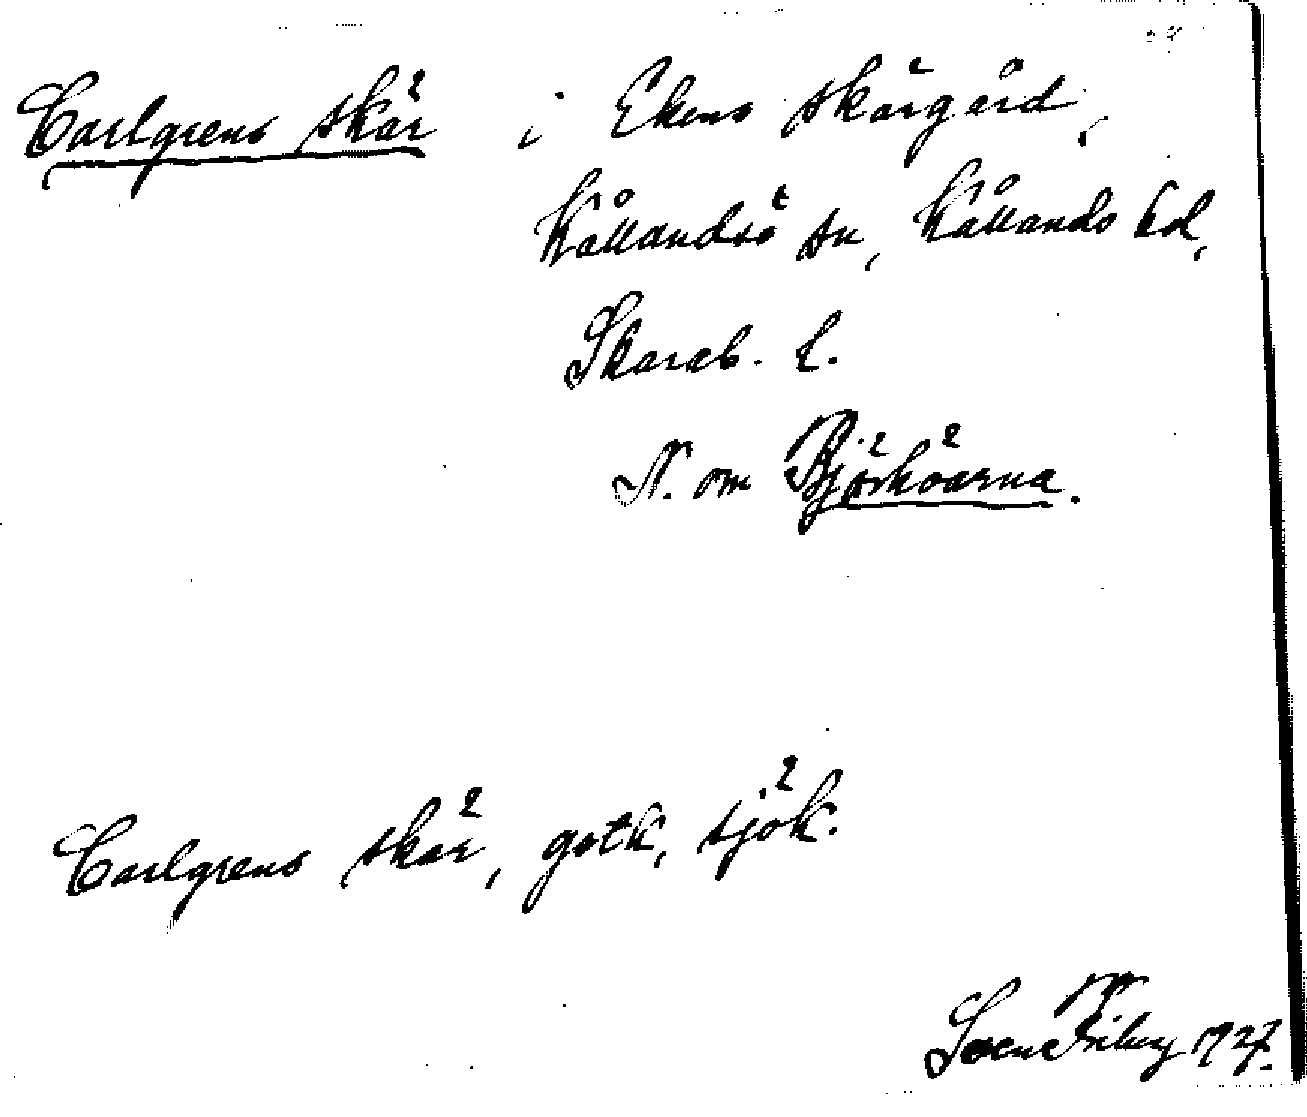 Carlgrens skär i Ekens skärgård,
Kållandsö sn, Kållands hd,
Skarab. l.
N. om Björköarna.
Carlgrens skär, gotk, sjök.
Sven Friberg 1927.